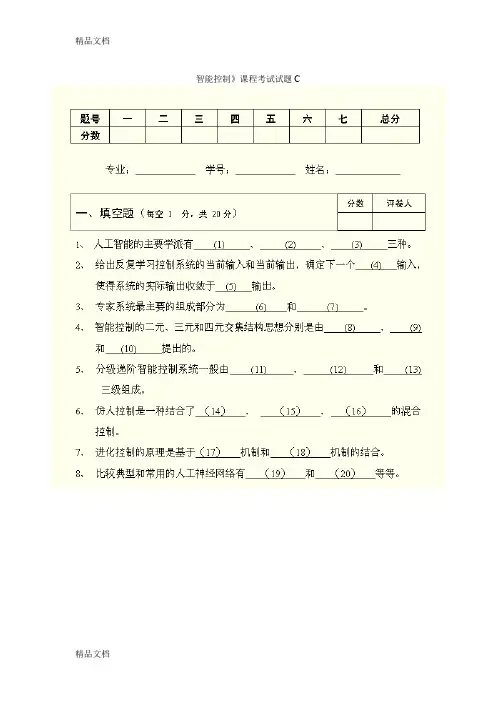 精品文档
智能控制》课程考试试题C
题号 一 二 三 四 五 六 七 总分
分数
专业:____________ 学号:____________ 姓名:____________
一、填空题(每空 1 分,共 20分) 分数 评卷人
1、 人工智能的主要学派有 (1) 、 (2) 、 (3) 三种。
2、 给出反复学习控制系统的当前输入和当前输出,确定下一个 (4) 输入,
使得系统的实际输出收敛于 (5) 输出。
3、 专家系统最主要的组成部分为 (6) 和 (7) 。
4、 智能控制的二元、三元和四元交集结构思想分别是由 (8) 、 (9)
和 (10) 提出的。
5、 分级递阶智能控制系统一般由 (11) 、 (12) 和 (13)
三级组成。
6、 仿人控制是一种结合了 (14) 、 (15) 、 (16) 的混合
控制。
7、 进化控制的原理是基于 (17) 机制和 (18) 机制的结合。
8、 比较典型和常用的人工神经网络有 (19) 和 (20) 等等。
精品文档